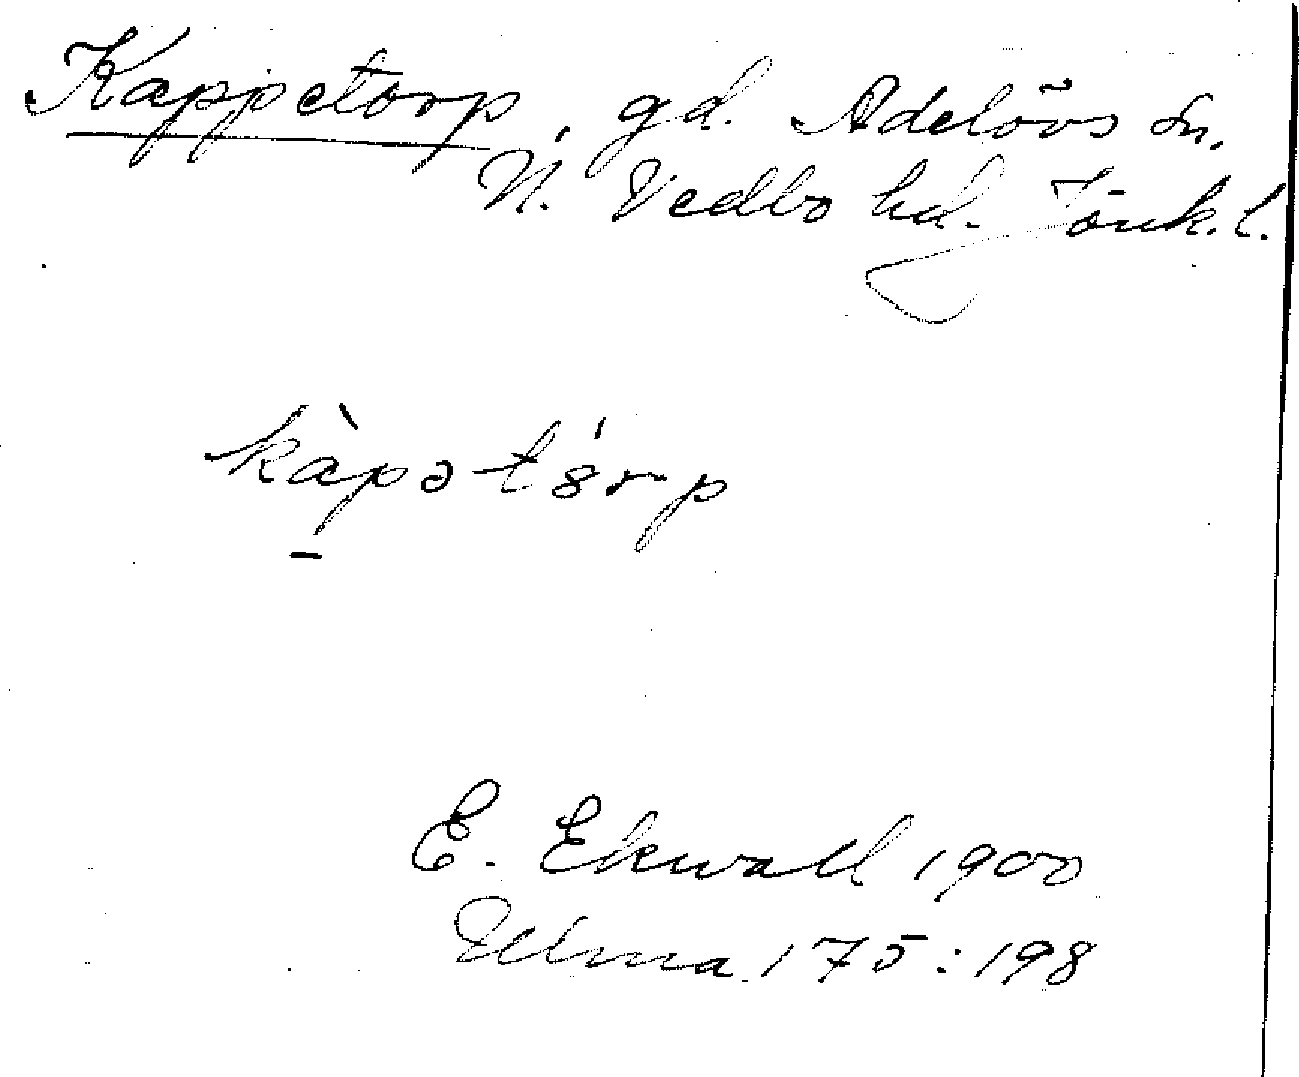 Kappetorp, gd. Adelövs sn.
N. Vedbo hd. Jönk. l.
kàpət8́rp
E. Ekwall 1900
Ulma 175:198